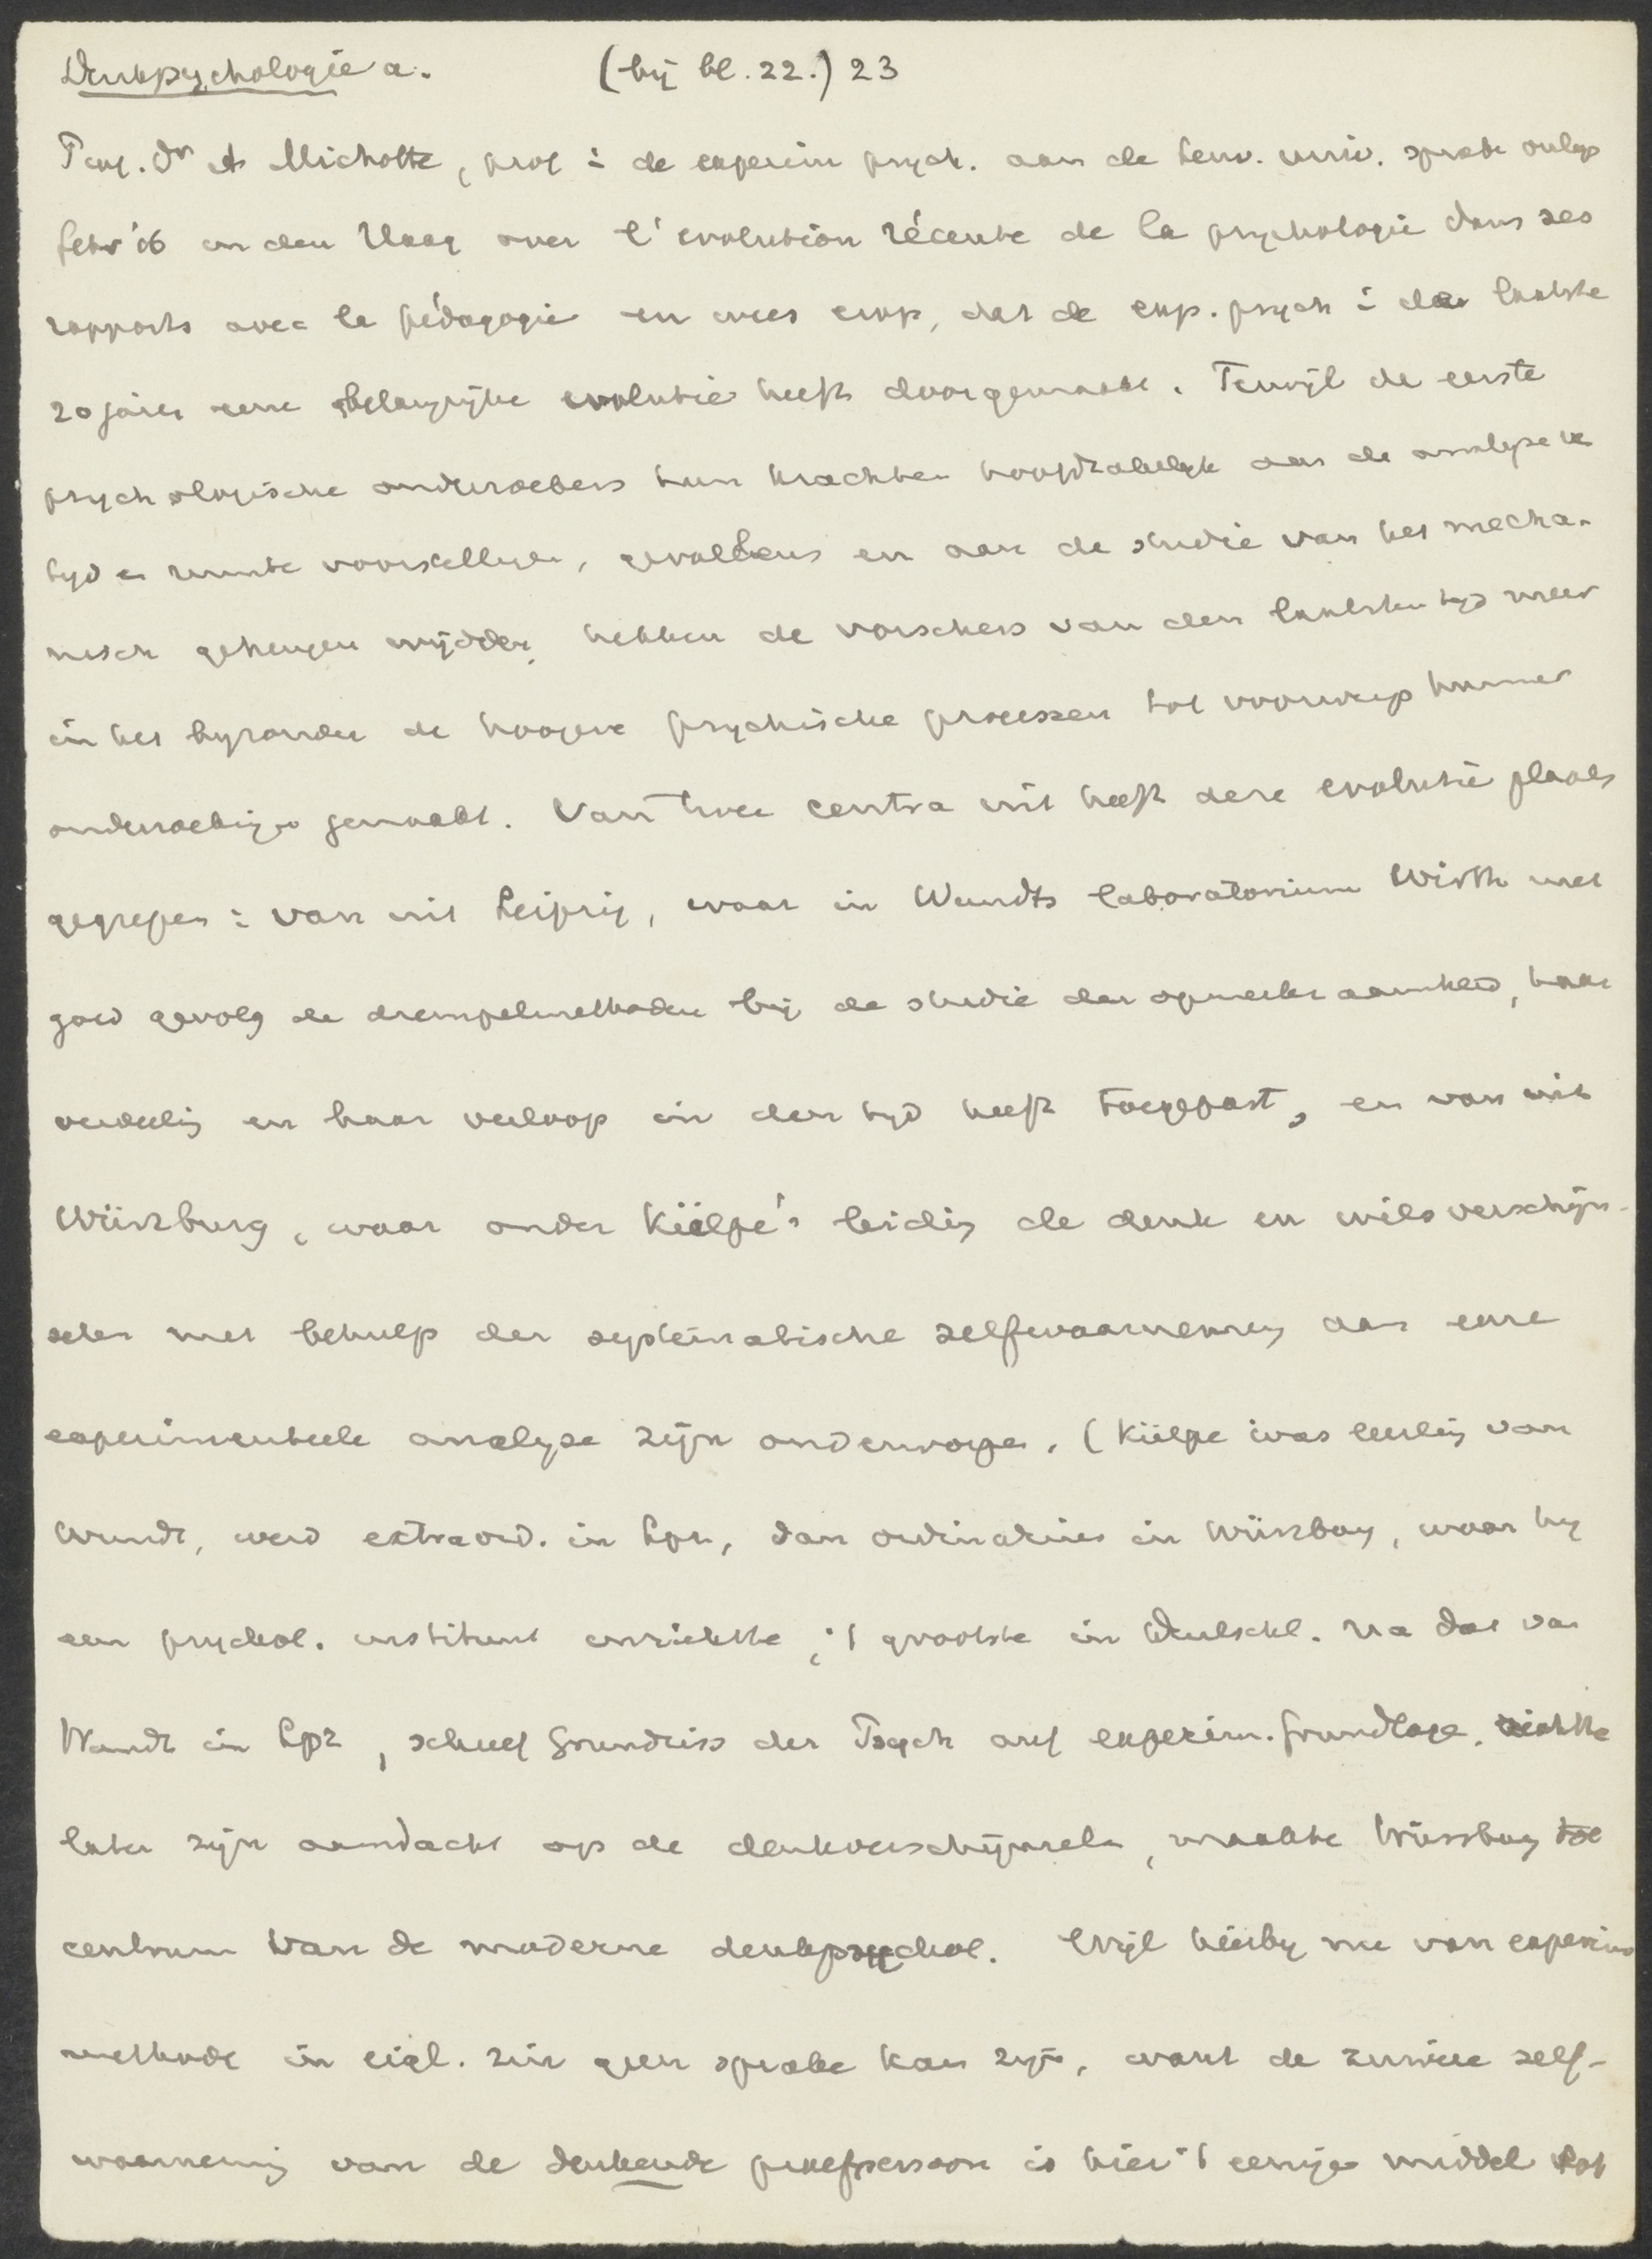 Denkpsychologie a. (bij bl. 22.) 23
Prof. Dr A Michotte, prof i de experim psych. aan de Leuv. univ. sprak onlgs
febr '16 in den Haag over l'evolution récente de la psychologie dans ses
rapports avec la pédagogie en wees erop, dat de exp. psych i de laatste
20 jaren eene belangrijke evolutie heeft doorgemaakt. Terwijl de eerste
psychologische onderzoekers hun krachten hoofdzakelijk aan de analyse v
tijd en ruimte voorstellingen, gevoelens en aan de studie van het mecha-
nisch geheugen wijdden, hebben de vorschers van den laatsten tijd meer
in het byzonder de hoogere psychische processen tot voorwerp hunner
onderzoekingen gemaakt. Van twee centra uit heeft deze evolutie plaats
gegrepen: van uit Leipzig, waar in Wundts laboratorium Wirth met
goed gevolg de drempelmethoden bij de studie der opmerkzaamheid, haar
verdeeling en haar verloop in den tyd heeft toegepast, en van uit
Würzburg, waar onder Külpe's leiding de denk en wilsverschijn-
selen met behulp der systematische zelfwaarneming aan eene
experimenteele analyse zijn onderworpen. (Külpe was leerling van
Wundt, werd extraord. in Lpz, dan ordinarius in Würzburg, waar hy
een psychol. instituut inrichtte, 't grootste in Deutschl. na dat van
Wundt in Lpz, schreef Grundriss der Psych auf experim. Grundlage, richtte
later zijn aandacht op de denkverschijnselen, maakte Würzburg tot
centrum van de moderne denkpsychol. Wijl hierby nu van experim
methode in eigl. zin geen sprake kan zijn, want de zuivere zelf-
waarneming van de denkende proefpersoon is hier 't eenige middel tot